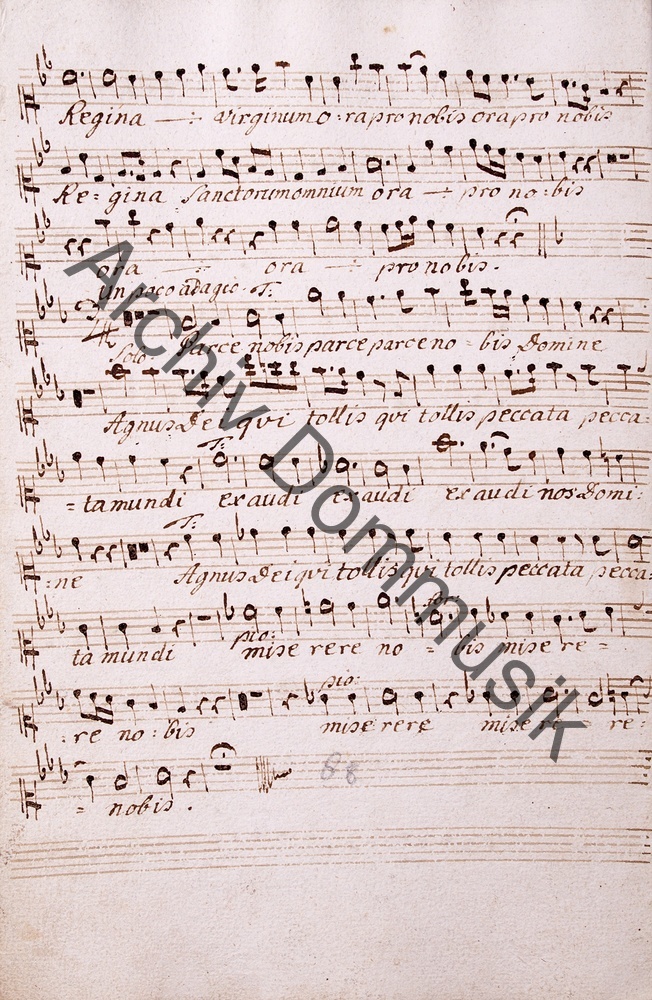 Regina virginum o: ra pro nobis ora pro nobis
Re= gina Sanctorum omnium ora pro no: bis
ora ora pro nobis.
Un poco adagio. T:
Solo. Parce nobis parce parce no= bis Domine
Agnus Dei qvi tollis qvi tollis peccata pecca=
T:
= ta mundi exaudi exaudi exaudi nos Domi:
T:
:ne Agnus Dei qvi tollis qvi tollis peccata pecca=
pio: for:
ta mundi mise rere no = bis mise re =
pio:
:re no: bis mise rere mise re re:
= nobis.
68
Archiv Dommusik